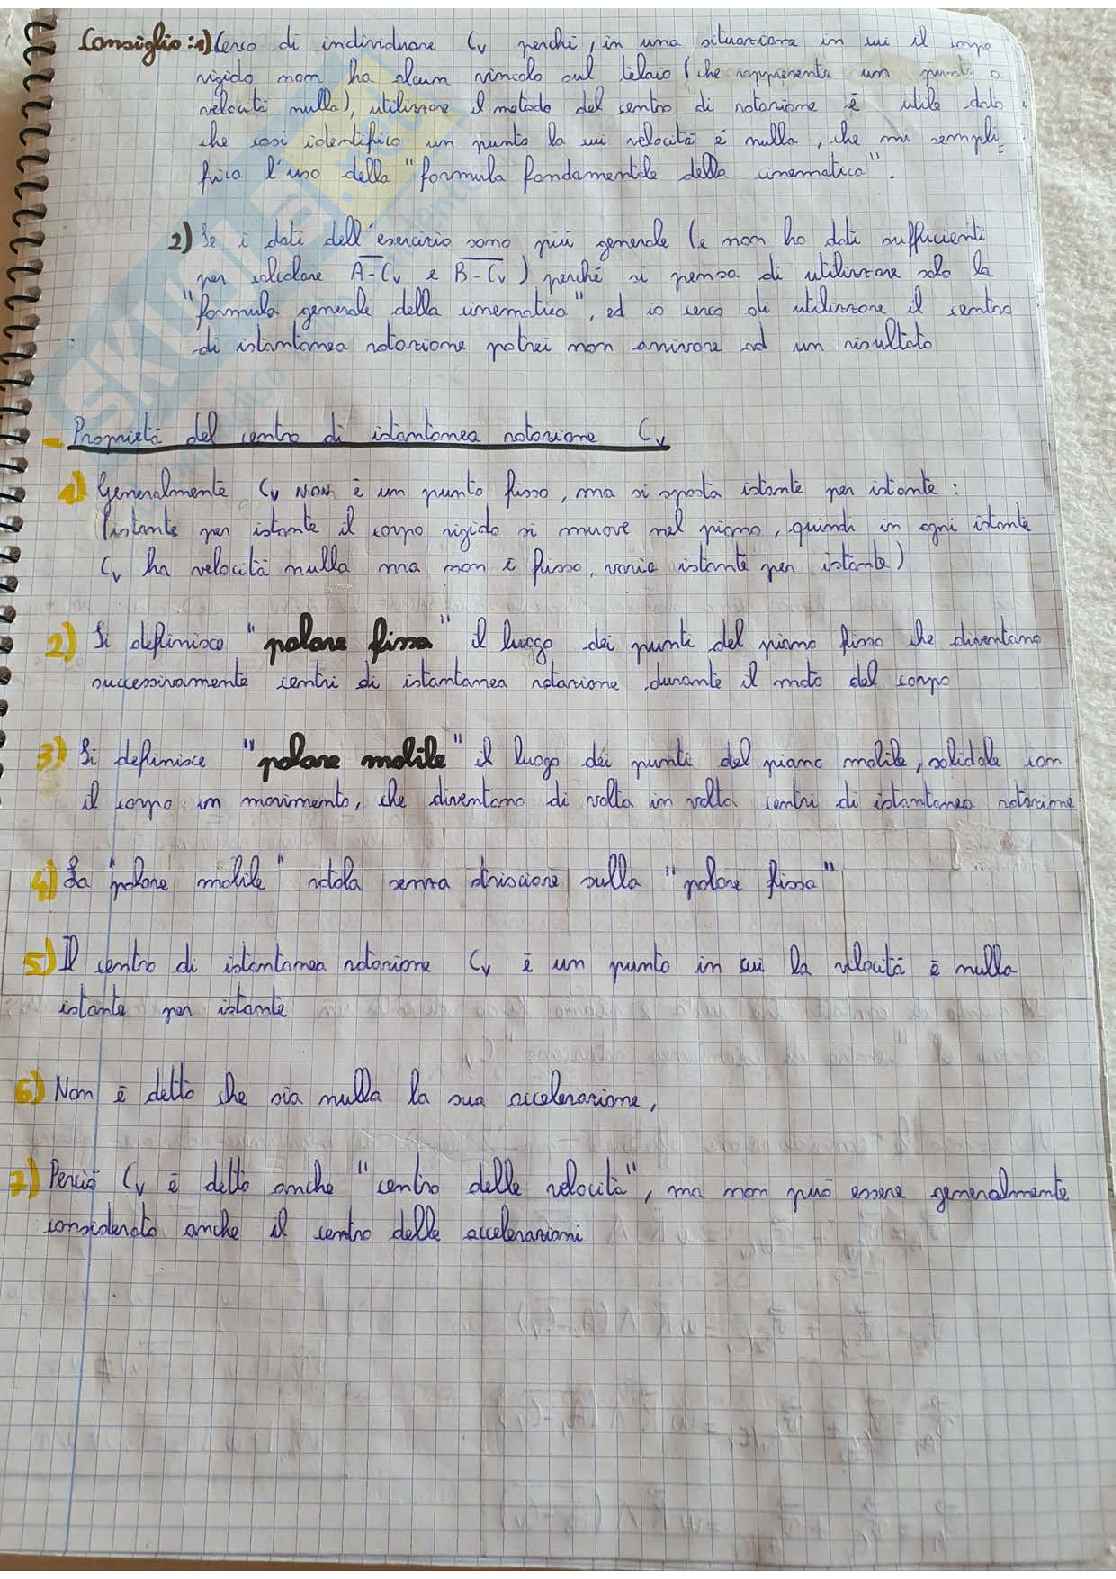 Consiglio: 1) Cerco di individuare Cv perché, in una situazione in cui il corpo
rigido non ha alcun vincolo sul telaio (che rappresenta un punto a
velocità nulla), utilizzare il metodo del centro di rotazione è utile dato
che così identifico un punto la cui velocità è nulla, che mi sempli-
fica l'uso della "formula fondamentale della cinematica".
2) Se i dati dell'esercizio sono più generale (e non ho dati sufficienti
per calcolare A-Cv e B-Cv) perché si pensa di utilizzare solo la
"formula generale della cinematica", ed io cerco di utilizzare il centro
di istantanea rotazione potrei non arrivare ad un risultato
- Proprietà del centro di istantanea rotazione Cv
1) Generalmente Cv NON è un punto fisso, ma si sposta istante per istante:
(istante per istante il corpo rigido si muove nel piano, quindi in ogni istante
Cv ha velocità nulla ma non è fisso, varia istante per istante)
2) Si definisce "polare fissa" il luogo dei punti del piano fisso che diventano
successivamente centri di istantanea rotazione durante il moto del corpo
3) Si definisce "polare mobile" il luogo dei punti del piano mobile, solidale con
il corpo in movimento, che diventano di volta in volta centri di istantanea rotazione
4) La "polare mobile" rotola senza strisciare sulla "polare fissa"
5) Il centro di istantanea rotazione Cv è un punto in cui la velocità è nulla
istante per istante
6) Non è detto che sia nulla la sua accelerazione,
7) Perciò Cv è detto anche "centro delle velocità", ma non può essere generalmente
considerato anche il centro delle accelerazioni